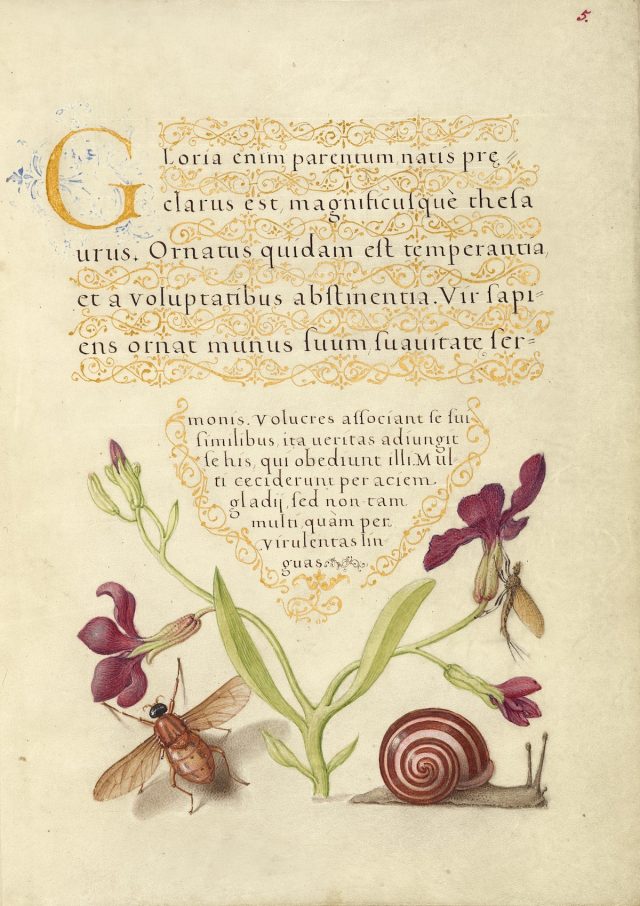 5.
Gloria enim parentum natis prę⸗
clarus est, magnificusquè thesa
urus. Ornatus quidam est temperantia,
et a voluptatibus abstinentia. Vir sapi⸗
ens ornat munus suum, suauitate ser⸗
monis. Volucres associant se sui
similibus, ita ueritas adiungit
se his, qui obediunt illi. Mul
ti ceciderunt per aciem
gladij, sed non tam
multi, quàm per
virulentas lin
guas.